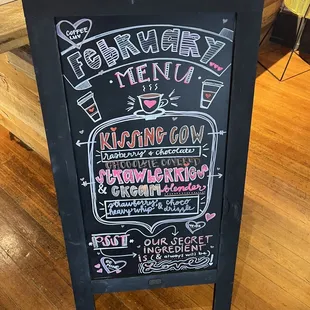 COFFEE
LUV
FEBRUARY
MENU
KISSING COW
rasberry & chocolate
CHOCOLATE COVERED
STRAWBERRIES
& CREAM blender
strawberry & choco
heavy whip & drizzle
PSST
OUR SECRET
INGREDIENT
IS (& always will be)